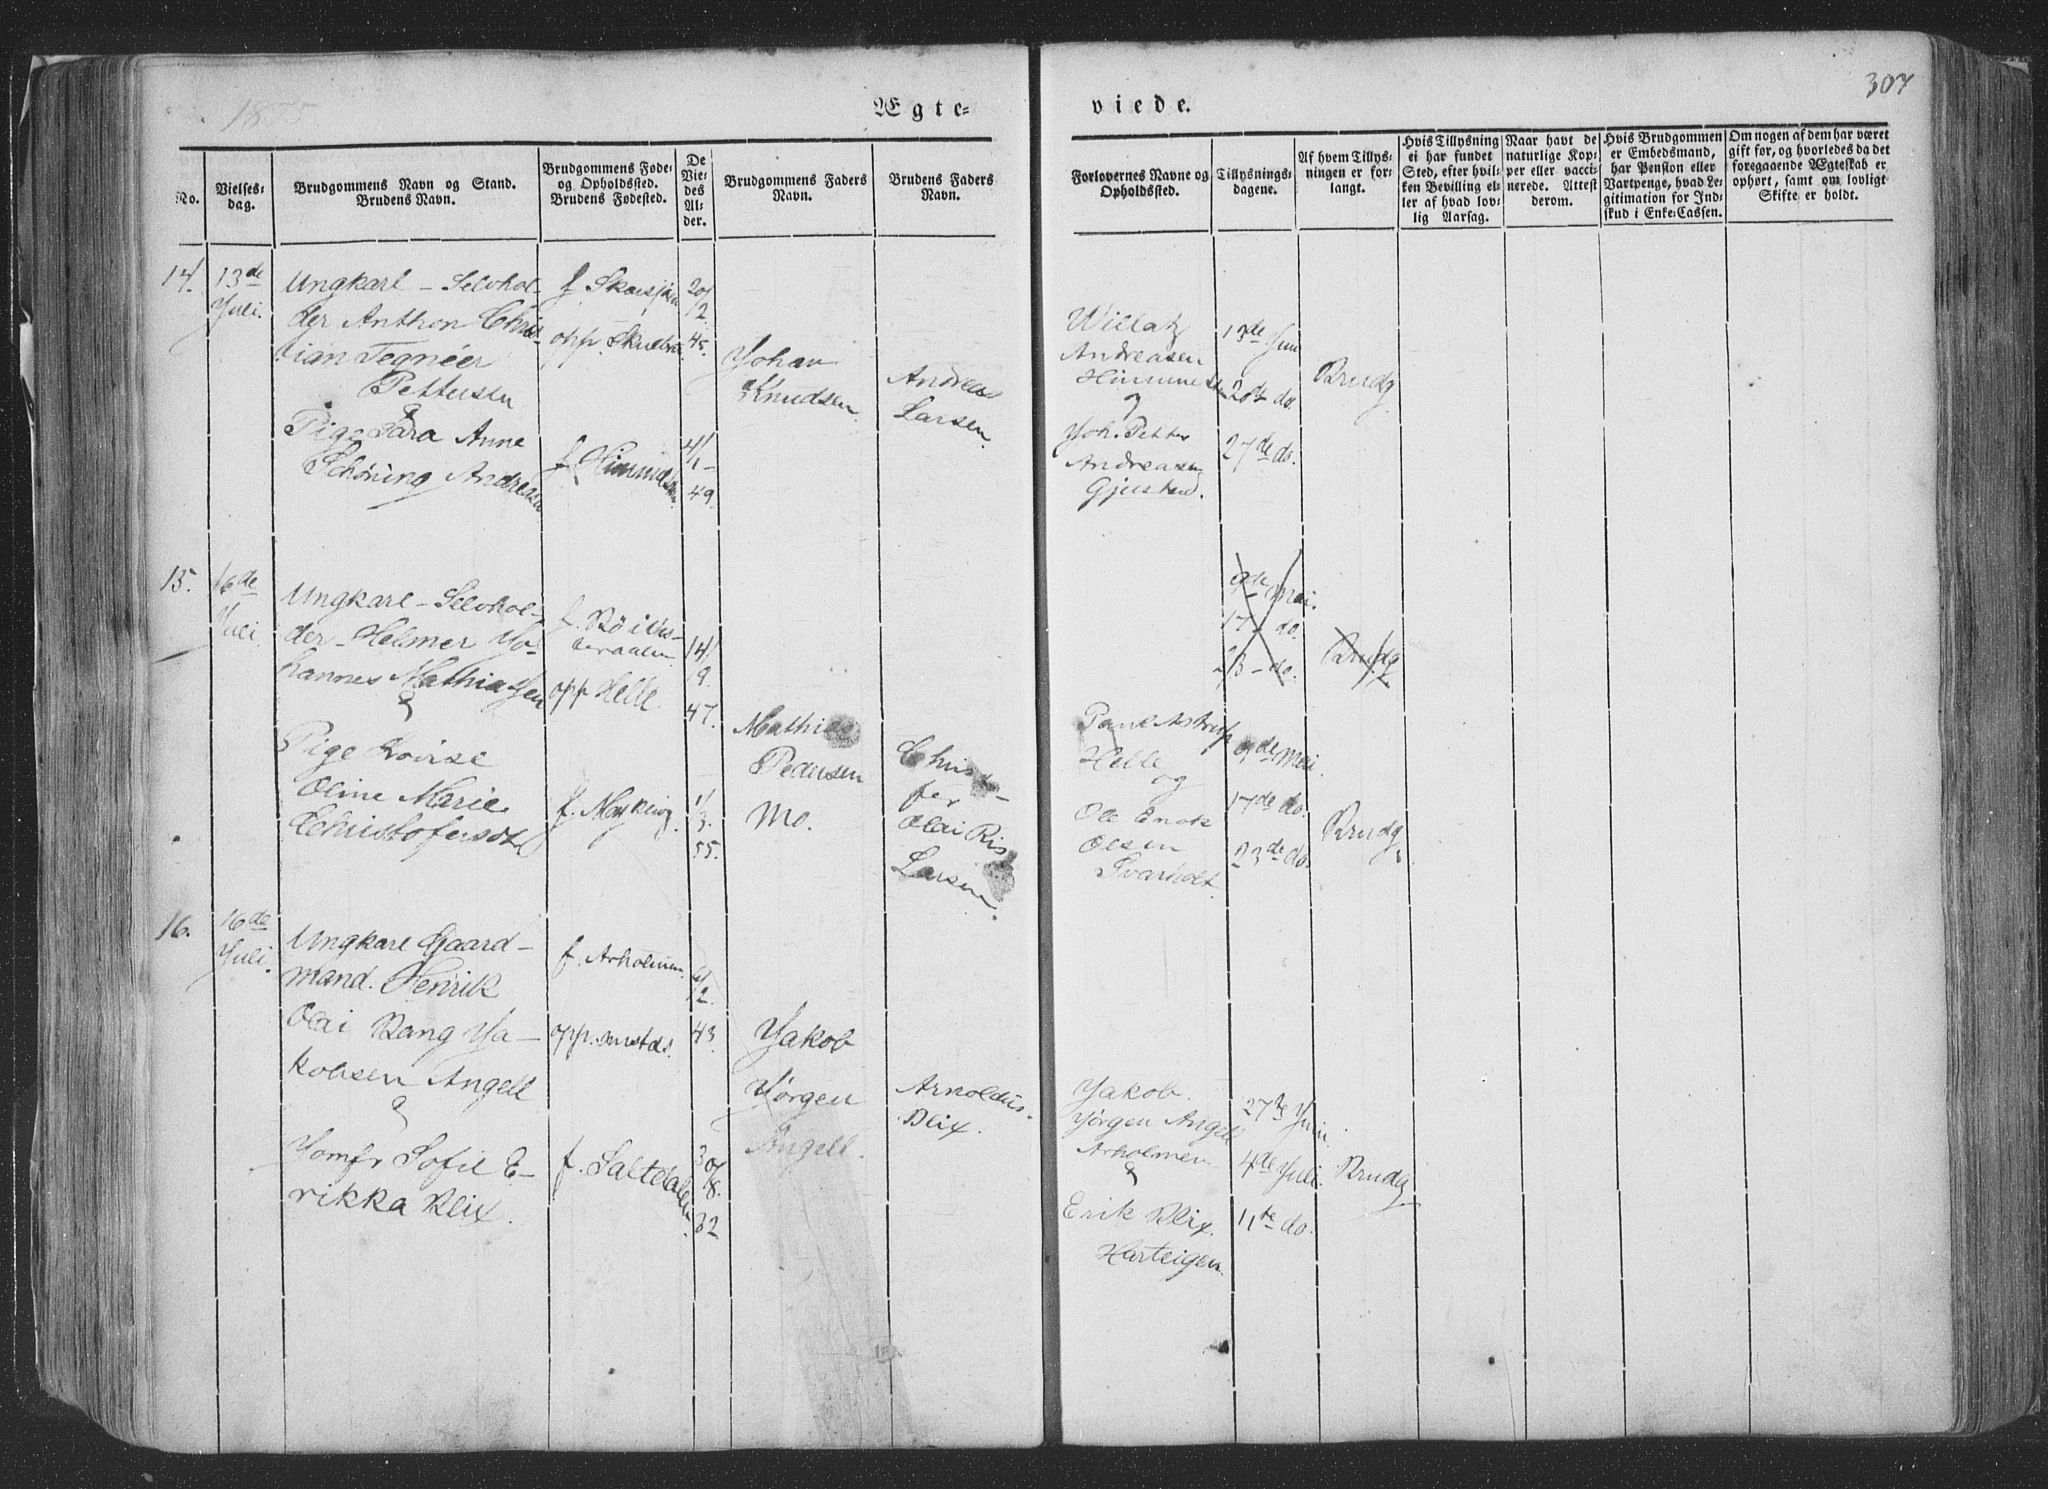 1875
Ægte-
viede.
307
No.
Vielses-
dag.
Brudgommens Navn og Stand.
Brudens Navn.
Brudgommens Føde-
og Opholdssted.
Brudens Fødested.
De
Vie-
des
Al-
der.
Brudgommens Faders
Navn.
Brudens Faders
Navn.
Forlovernes Navne og
Opholdssted.
Tillysnings-
dagene.
Af hvem Tillys-
ningen er for-
langt.
Hvis Tillysning
ei har fundet
Sted, efter hvil-
ken Bevilling el-
ler af hvad lov-
lig Aarsag.
Naar havt de
naturlige Kop-
per eller vacci-
nerede. Attest
derom.
Hvis Brudgommen
er Embedsmand,
har Pension eller
Vartpenge, hvad Le-
gitimation for Ind-
skud i Enke-Cassen.
Om nogen af dem har været
gift før, og hvorledes da det
foregaaende Ægteskab er
ophørt, samt om lovligt
Skifte er holdt.
14.
13de
Juli.
Ungkarl - Selvhol-
der Anthon Chris-
tian Tegnéer
Pettersen
&
Pige Sara Anne
Schöning Andreasen
f.
opp.
f.
20/
12
45.
4/
1-
49.
Johan
Knudsen
Andreas
Larsen.
Willatz
Andreasen
&
Joh. Petter
Andreasen
13de Juni
20de do.
27de do.
Brudg
15.
16de
Juli
Ungkarl - Selvhol-
der - Helmer Jo-
hannes Mathiassen
&
Pige Lovise
Oline Marie
Christofersdt
f.
opp Helle
f.
14/
9.
47.
1/
3.
55.
Mathias
Pedersen
Mo.
Christ-
fer
Olai Ris
Larsen.
9de Mai.
17 - do.
23 - do.
Brudg
Paul Astrup
Helle
og
Ole Enok
Olsen
Svarholt
9de Mai.
17de do.
23de do.
Brudg
16.
16de
Juli.
Ungkarl Gaard-
mand. Henrik
Olai Bang Ja-
kobsen Angell
&
Jomfr Sofie E-
rikka Blix.
f. Arholmen.
opp. smstds.
f. Saltdalen.
12
43.
30/
8.
32
Jakob
Jörgen
Angell.
Arnoldus
Blix.
Jakob
Jörgen Angell
Arholmen
&
Erik Blix.
Harteigen.
27de Juni.
4de Juli.
11te do.
Brudg